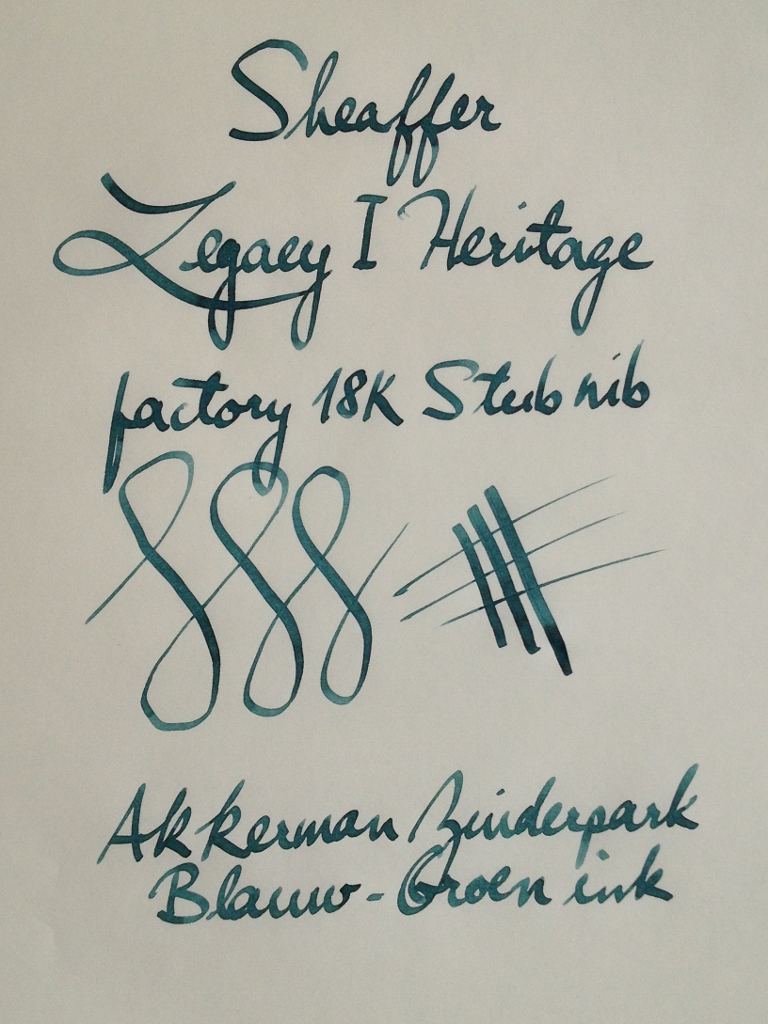 Sheaffer
Legacy I Heritage
factory 18K Stub nib
Akkerman Zuiderpark
Blauw-Groen ink